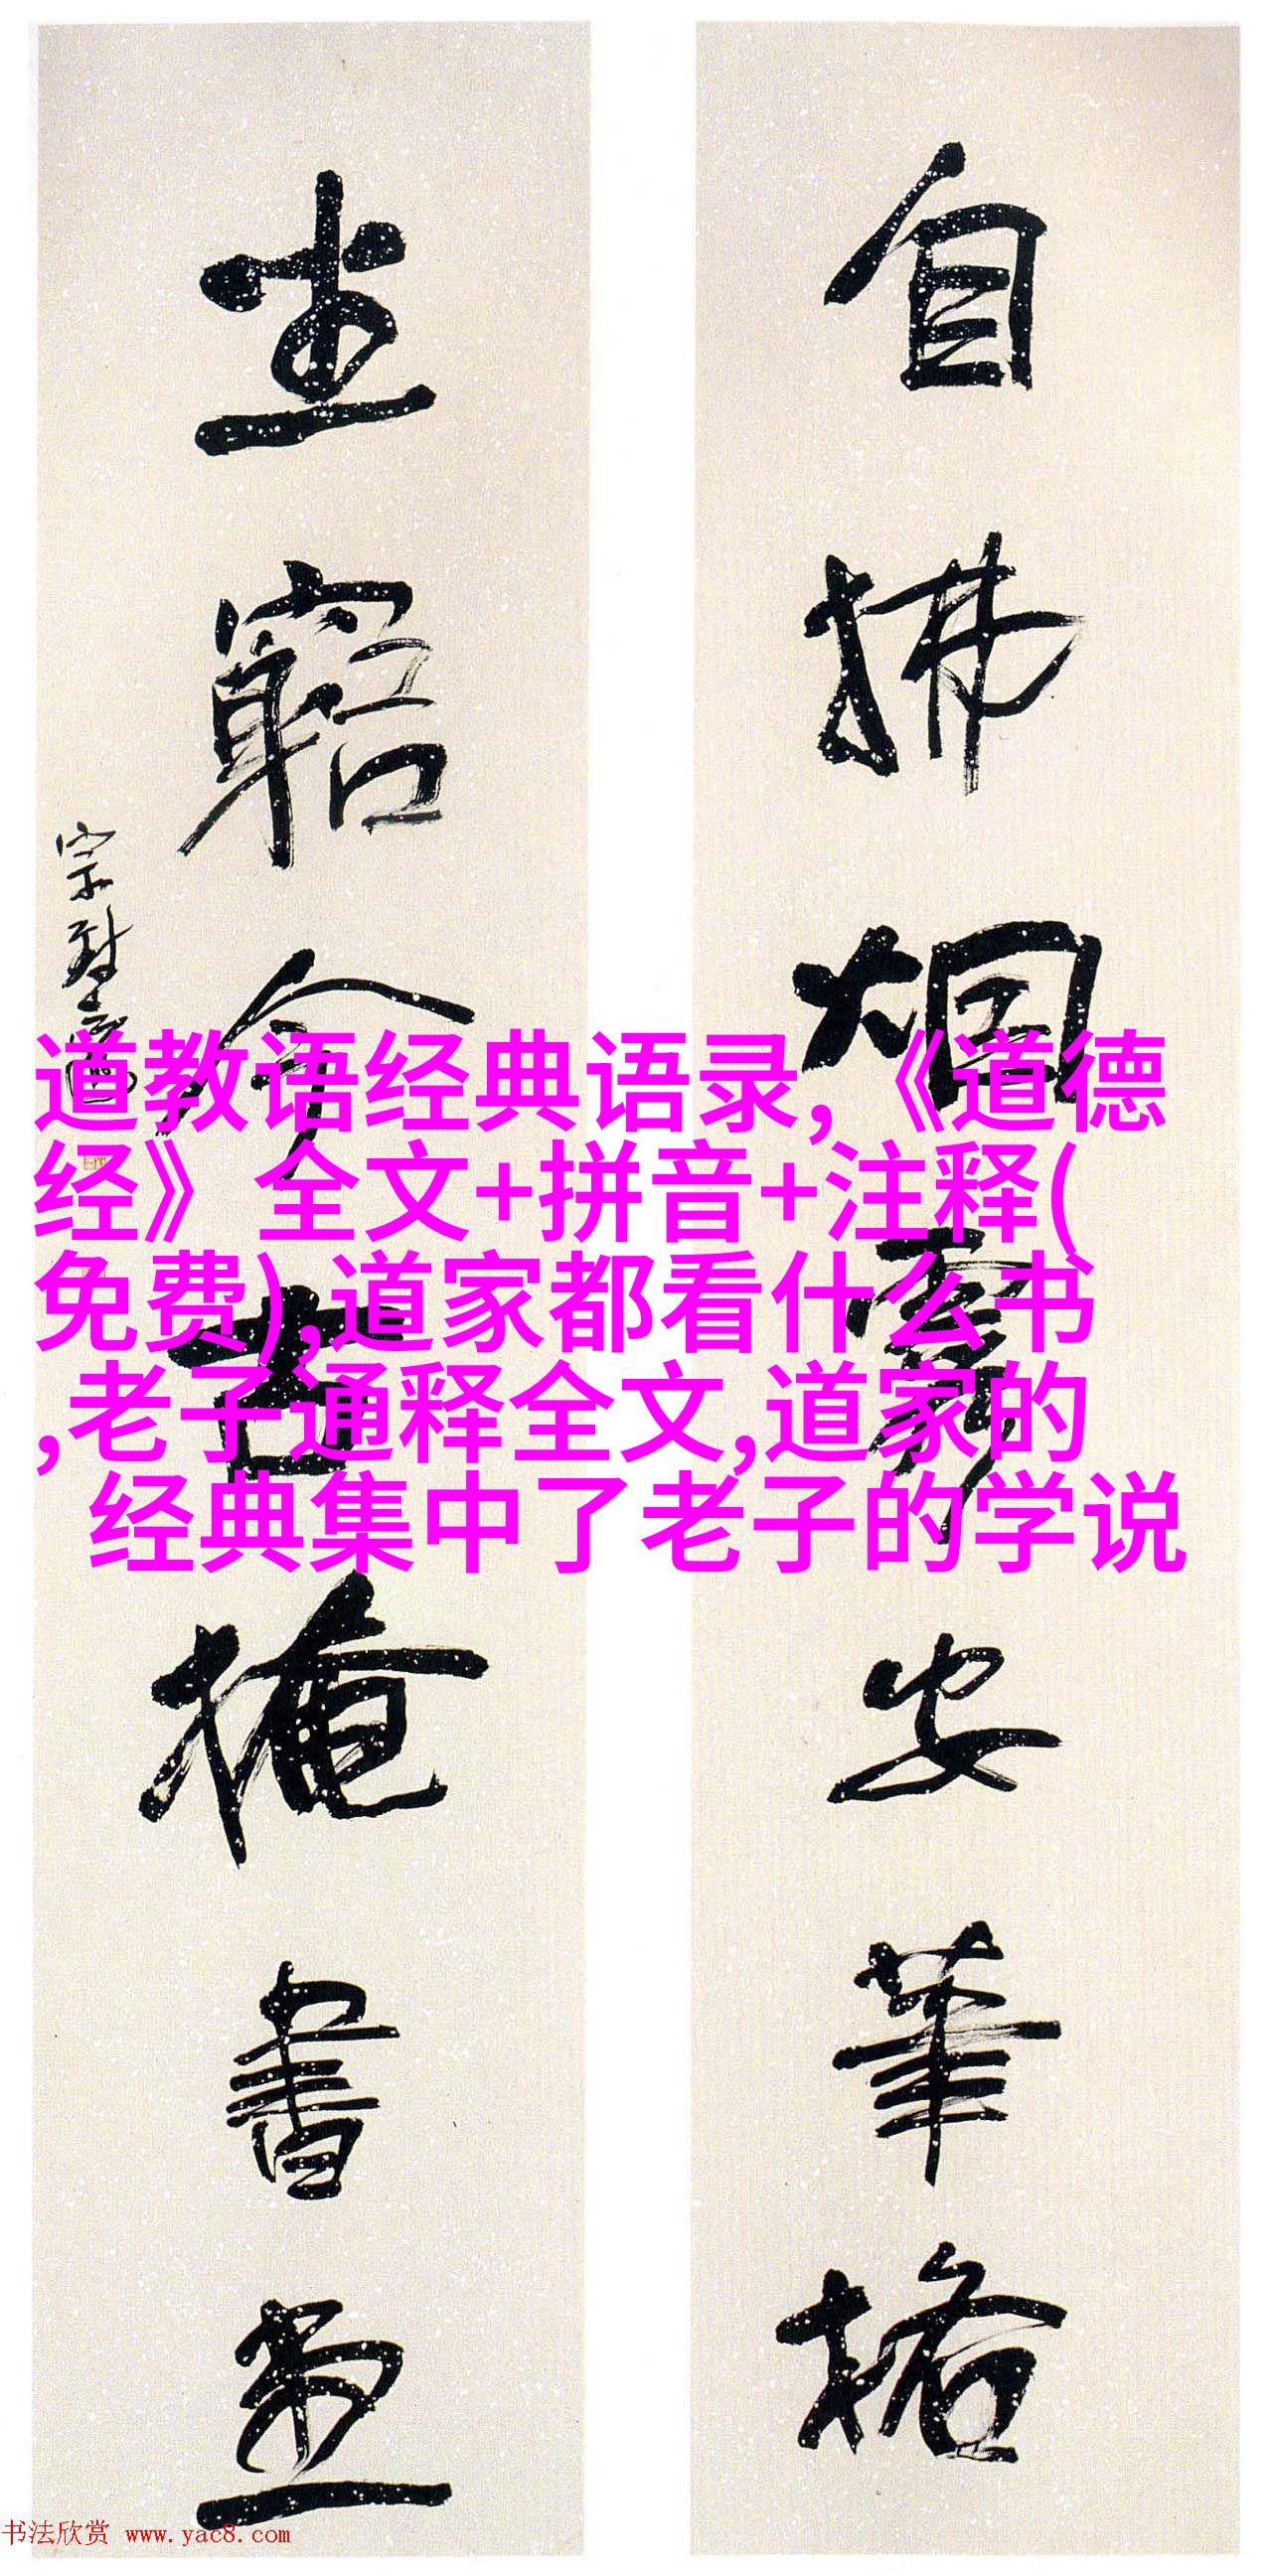 自拂烟霞安筆格
坐窮今古掩書堂
道教语经典语录,《道德
经》全文+拼音+注释(
免费),道家都看什么书
,老子通释全文,道家的
经典集中了老子的学说
书法欣赏 www.yac8.com